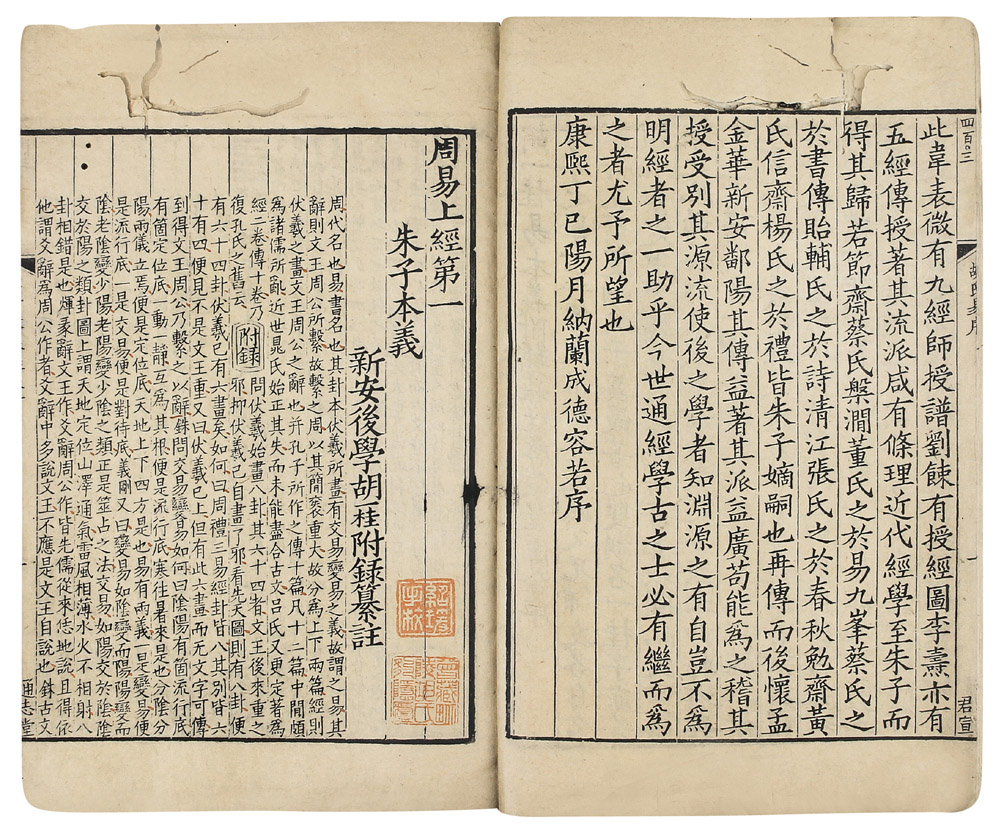 四百〇三
君宣
此韋表微有九經師授譜劉餗有授經圖李燾亦有
五經傳授著其流派咸有條理近代經學至朱子而
得其歸若節齋蔡氏槃澗董氏之於易九峯蔡氏之
於書傳貽輔氏之於詩清江張氏之於春秋勉齋黃
氏信齋楊氏之於禮皆朱子嫡嗣也再傳而後懷孟
金華新安鄱陽其傳益著其派益廣苟能為之稽其
授受別其源流使後之學者知淵源之有自豈不為
明經者之一助乎今世通經學古之士必有繼而為
之者尤予所望也
康熙丁巳陽月納蘭成德容若序
周易上經第一
朱子本義
新安後學胡一桂附録纂註
周代名也易書名也其卦本伏羲所畫有交易變易之義故謂之易其
辭則文王周公所繫故繫之周以其簡袠重大故分為上下兩篇經則
伏羲之畫文王周公之辭也并孔子所作之傳十篇凡十二篇中間頗
為諸儒所亂近世晁氏始正其失而未能盡合古文呂氏又更定著為
經二卷傳十卷乃
復孔氏之舊云附録問伏羲始畫八卦其六十四者文王後來重之
邪抑伏羲已自畫了邪看先天圖則有八卦便
有六十四卦伏羲已有六畫矣如何曰周禮三易經卦皆八其別皆六
十有四便見不是文王重又曰伏羲已上但有此六畫而无文字可傳
到得文王周公乃繫之以辭銖問交易變易如何曰陰陽有箇流行底
有箇定位底一動一靜互為其根便是流行底寒往暑來是也分陰分
陽兩儀立焉便是定位底天地上下四方是也易有兩義一是變易便
是流行底一是交易便是對待底義剛又曰變易如陰變而陽陽變而
陰老陰變少陽老陽變少陰之類正是筮占之法交易如陽交於陰陰
交於陽之類卦圖上謂天地定位山澤通氣雷風相薄水火不相射八
卦相錯是也煇彖辭文王作爻辭周公作皆先儒從來恁地說且得依
他謂爻辭為周公作者爻辭中多說文王不應是文王自說也銖古文
通志堂